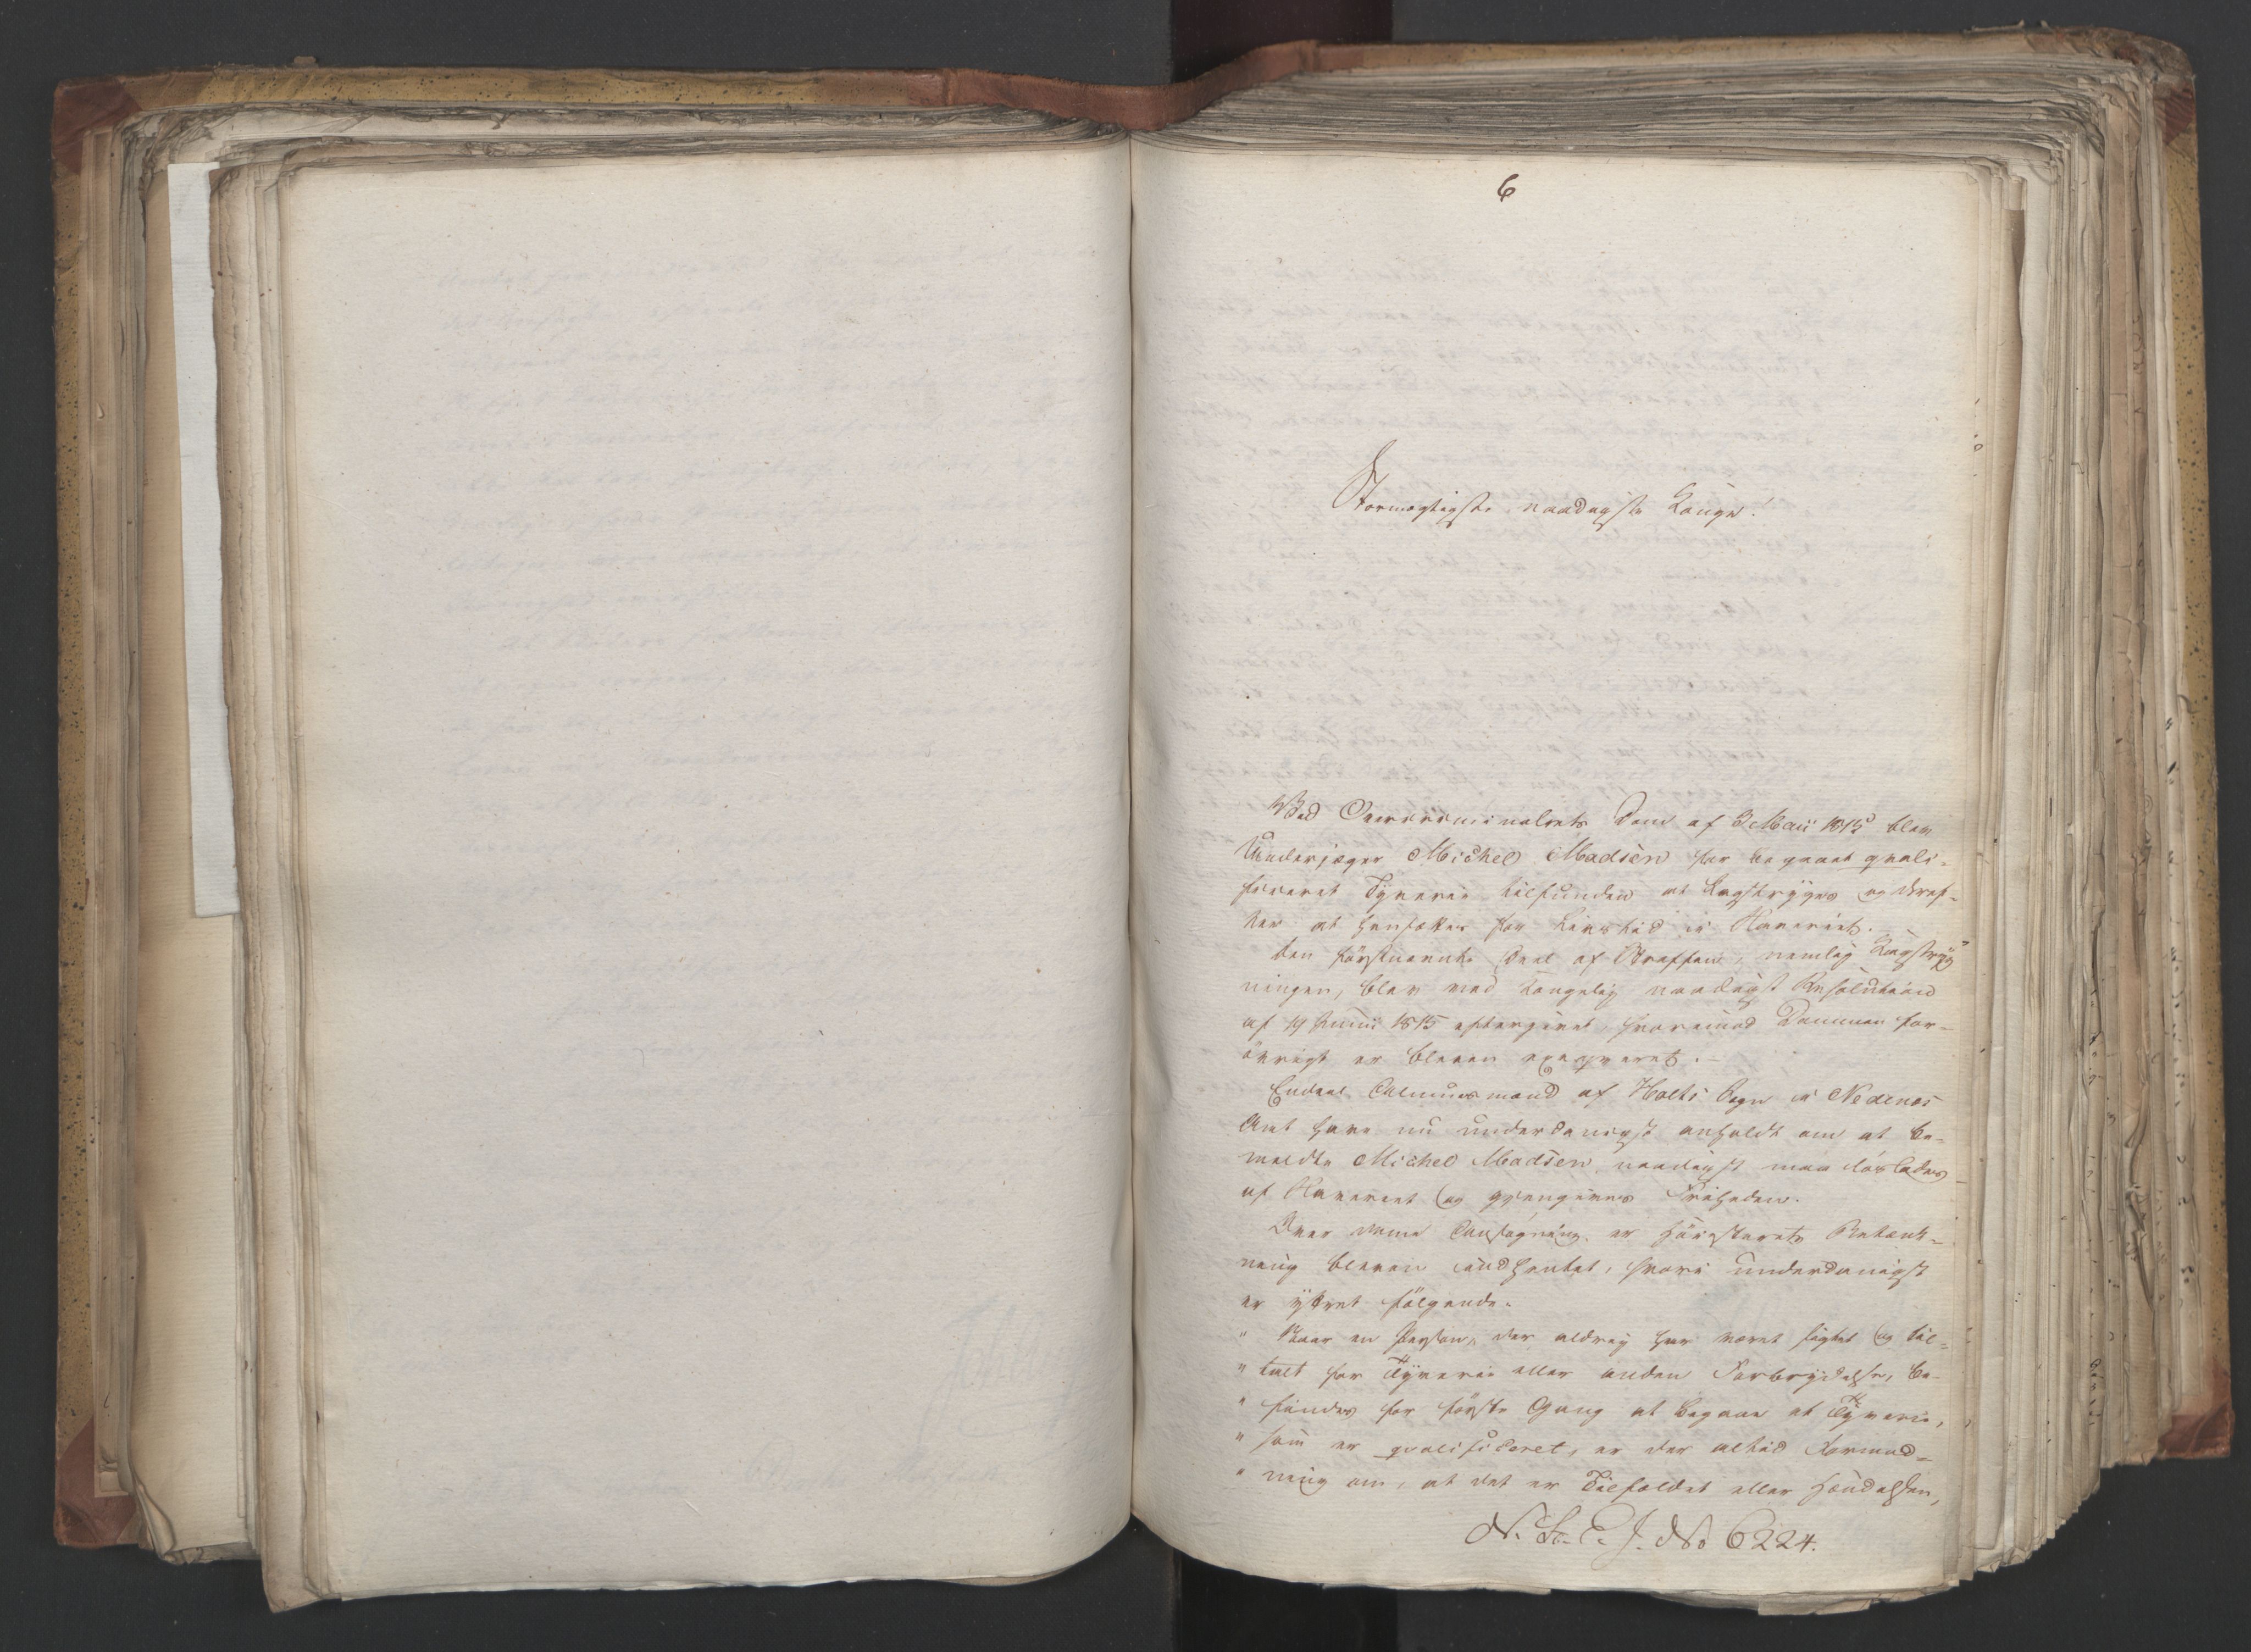 6
Stormægtigste naadigste Konge!
Ved Overcriminalrets Dom af 3 Maii 1815 blev
Underjæger Michel Madsen for begaaet qvali-
ficeret Tyverie tilfunden at kagstryges og deref-
ter at hensættes for Livstid i Slaveriet.
Den førstnævnte Deel af Straffen, nemlig Kagstryg-
ningen, blev ved Kongelig naadigst Resolution
af 19 Junii 1815 eftergivet, hvorimod Dommen for-
øvrigt er bleven exeqveret.
Endeel Almuesmænd af Holts Sogn i Nedenes
Amt have nu underdanigst anholdt om at be-
meldte Michel Madsen naadigst maa løslades
af Slaveriet og gjengives Friheden.
Over denne Ansøgning er Høiesterets Betænk-
ning bleven indhentet, hvori underdanigst
er yttret følgende.
" Naar en Person, der aldrig har været sigtet og til-
" talt for Tyverie eller anden Forbrydelse, be-
" findes for første Gang at begaae et Tyverie,
" som er qvalificeret, er der altid Formod-
" ning om, at det er Tilfældet eller Hændelsen,
N. St. C. J. No 6224.